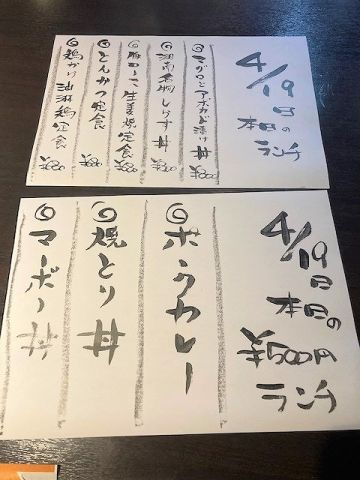 4/19日
本日の
ランチ
マグロとアボカド漬け丼 ¥800
湘南名物しらす丼 ¥800
豚ロース生姜焼定食 ¥800
とんかつ定食 ¥800
鶏かけ油淋鶏定食 ¥800
4/19日
本日の
¥500円
ランチ
ポークカレー
焼とり丼
マーボー丼